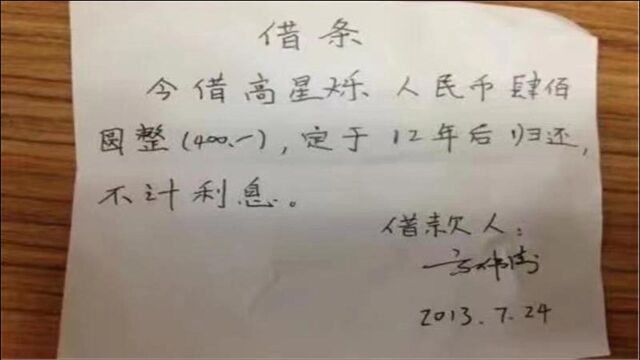 借条
今借高星烁人民币肆佰
圆整(400.-),定于12年后归还,
不计利息。
借款人:
2013.7.24